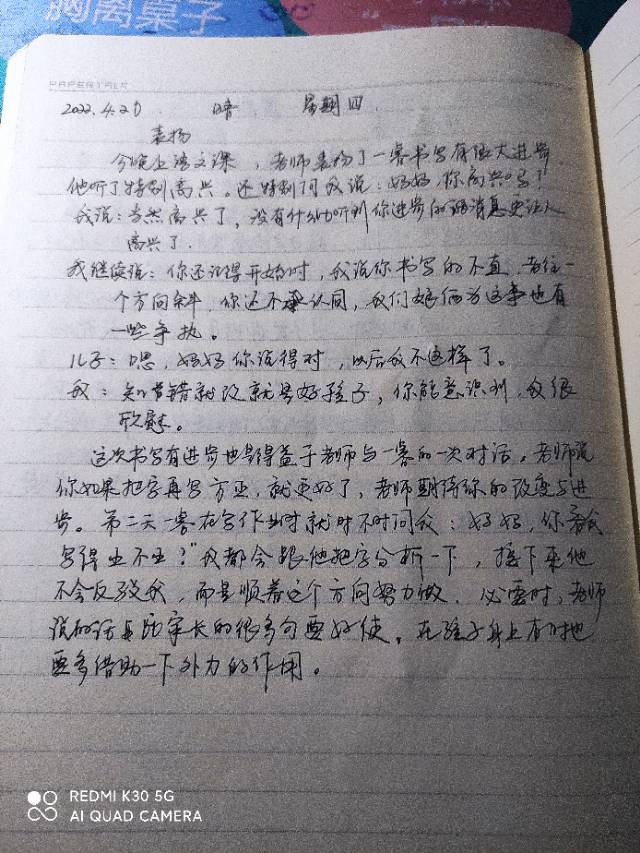 胸离桌子
PAPERTALK
2022.4.20 晴 星期四
表扬
今晚上语文课，老师表扬了一客书写有很大进步，
他听了特别高兴。还特别问我说：妈妈，你高兴吗？
我说：当然高兴了，没有什么比听到你进步的消息更让人
高兴了．
我继续说：你还记得开始时，我说你书写的不直，老往一
个方向斜，你还不承认同，我们娘俩为这事也有
一些争执。
儿子：嗯，妈妈你说得对，以后我不这样了。
我：知错就改就是好孩子，你能意识到，我很
欣慰。
这次书写有进步也是得益于老师与一客的一次对话，老师说
你如果把字再写方正，就更好了，老师期待你的改变与进
步。第二天一客在写作业时就时不时问我：妈妈，你看我
写得正不正？"我都会跟他把字分析一下，接下来他
不会反驳我，而是顺着这个方向努力做．必要时，老师
说的话真比家长的很多句要好使，在孩子身上有时也
要多借助一下外力的作用。
REDMI K30 5G
AI QUAD CAMERA